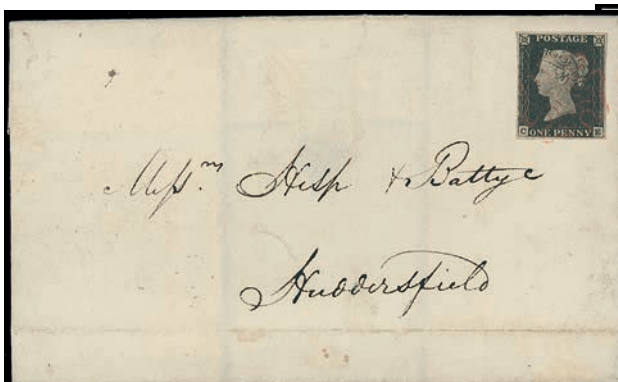 POSTAGE
ONE PENNY
Messrs Hesp & Battye
Huddersfield